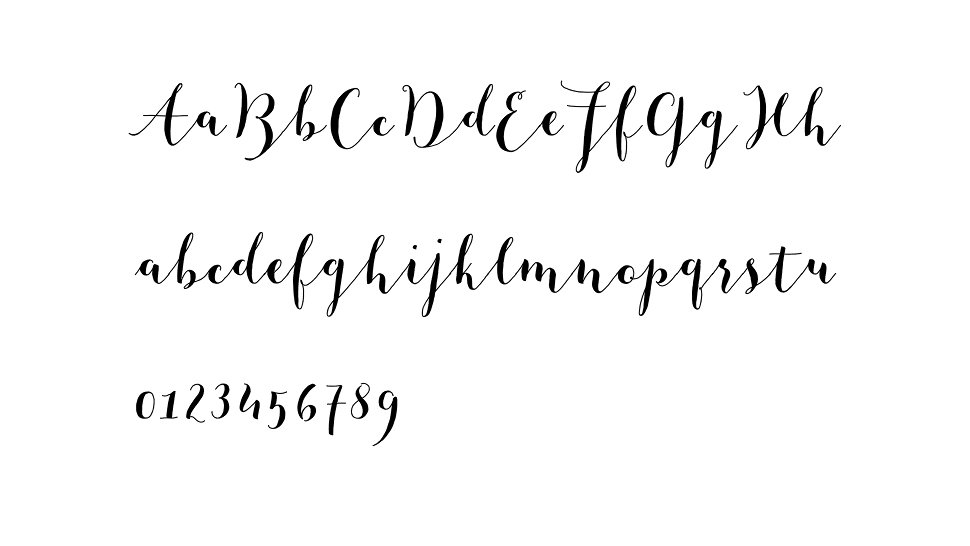 AaBbCcDdEeFfGgHh
abcdefghijklmnopqrstu
0123456789